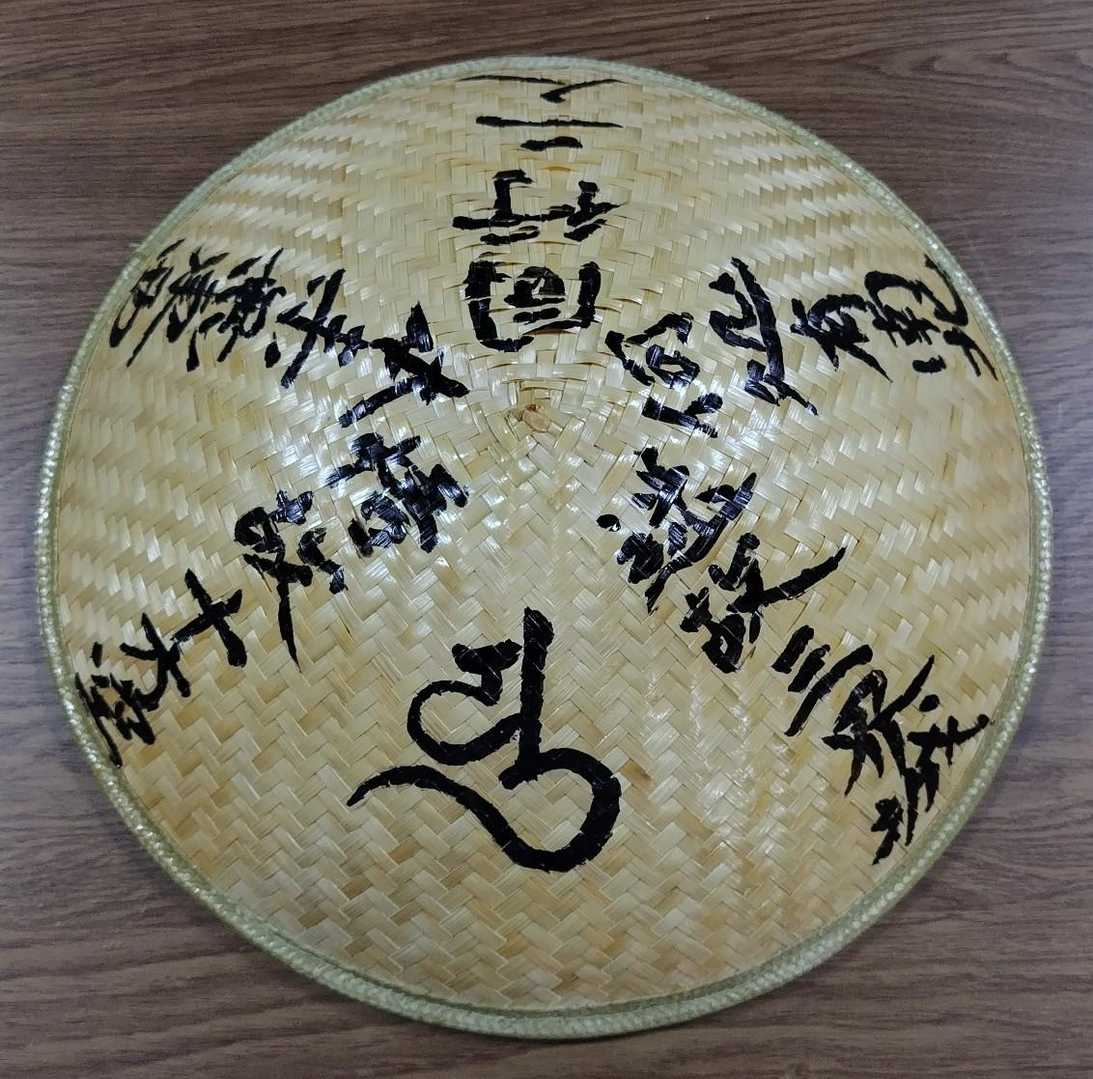 迷故三界城
悟故十方空
本来無東西
何処有南北
同行二人